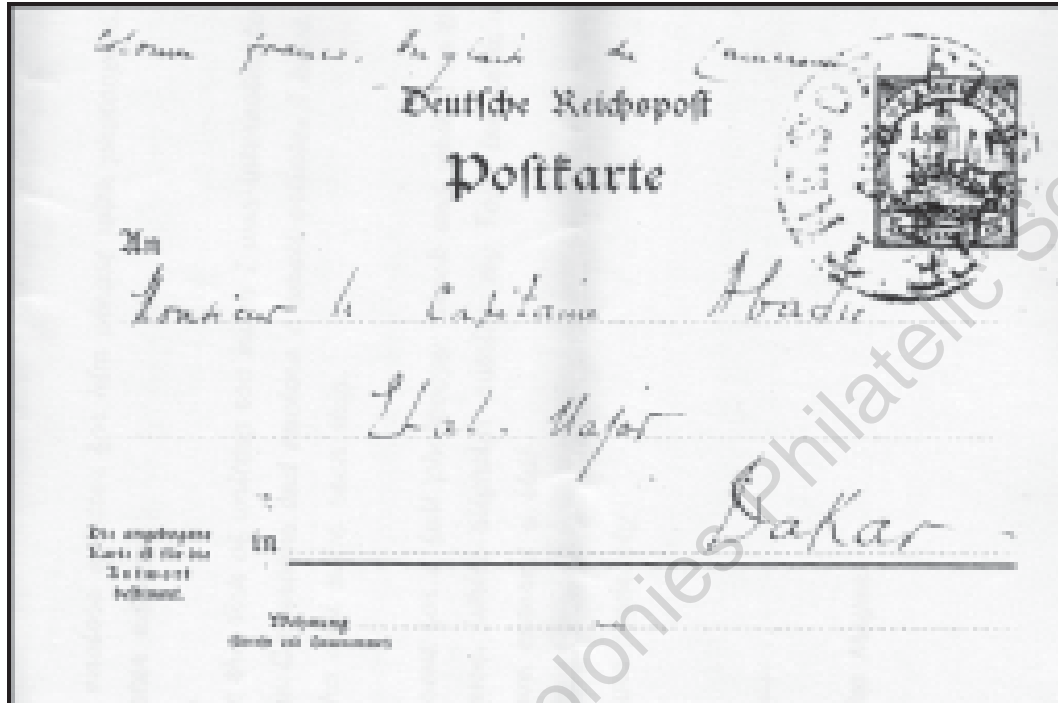 franco.
du Cameroun
Deutsche Reichspost
Postkarte
An
Monsieur le Capitaine Abadie
Etat-Major
Dakar
in
Die angebogene
Karte ist für die
Antwort
bestimmt.
Wohnung
(Straße und Hausnummer)
olonies Philatelic So